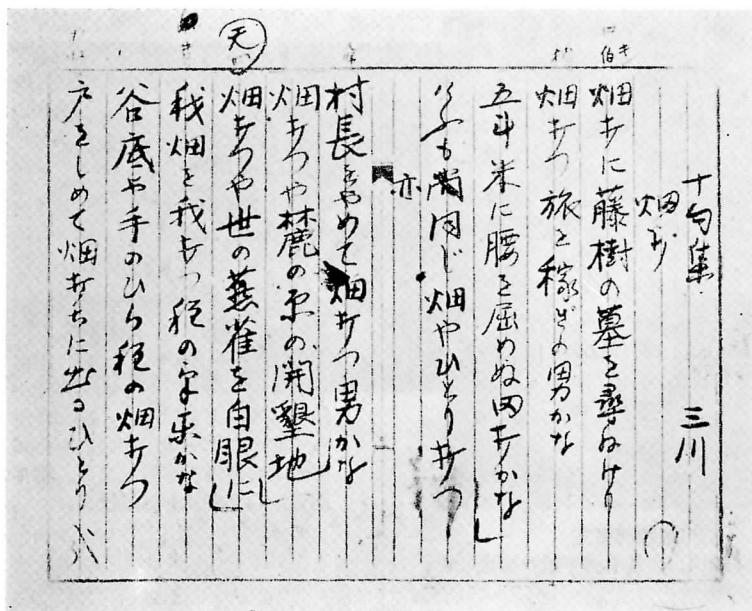 十句集 三川
畑打
畑打に藤樹の墓を尋ねけり
畑打つ旅を稼ぎの男かな
五斗米に腰を屈めぬ畑打かな
けふも尚同じ畑やひとり打つ
亦
村長をやめて畑打つ男かな
畑打つや麓の原の開墾地
天
畑打つや世の燕雀を白眼にし
我畑を我打つ程のかな
谷底や手のひら程の畑打つ
戸をしめて畑打ちに出るひとり